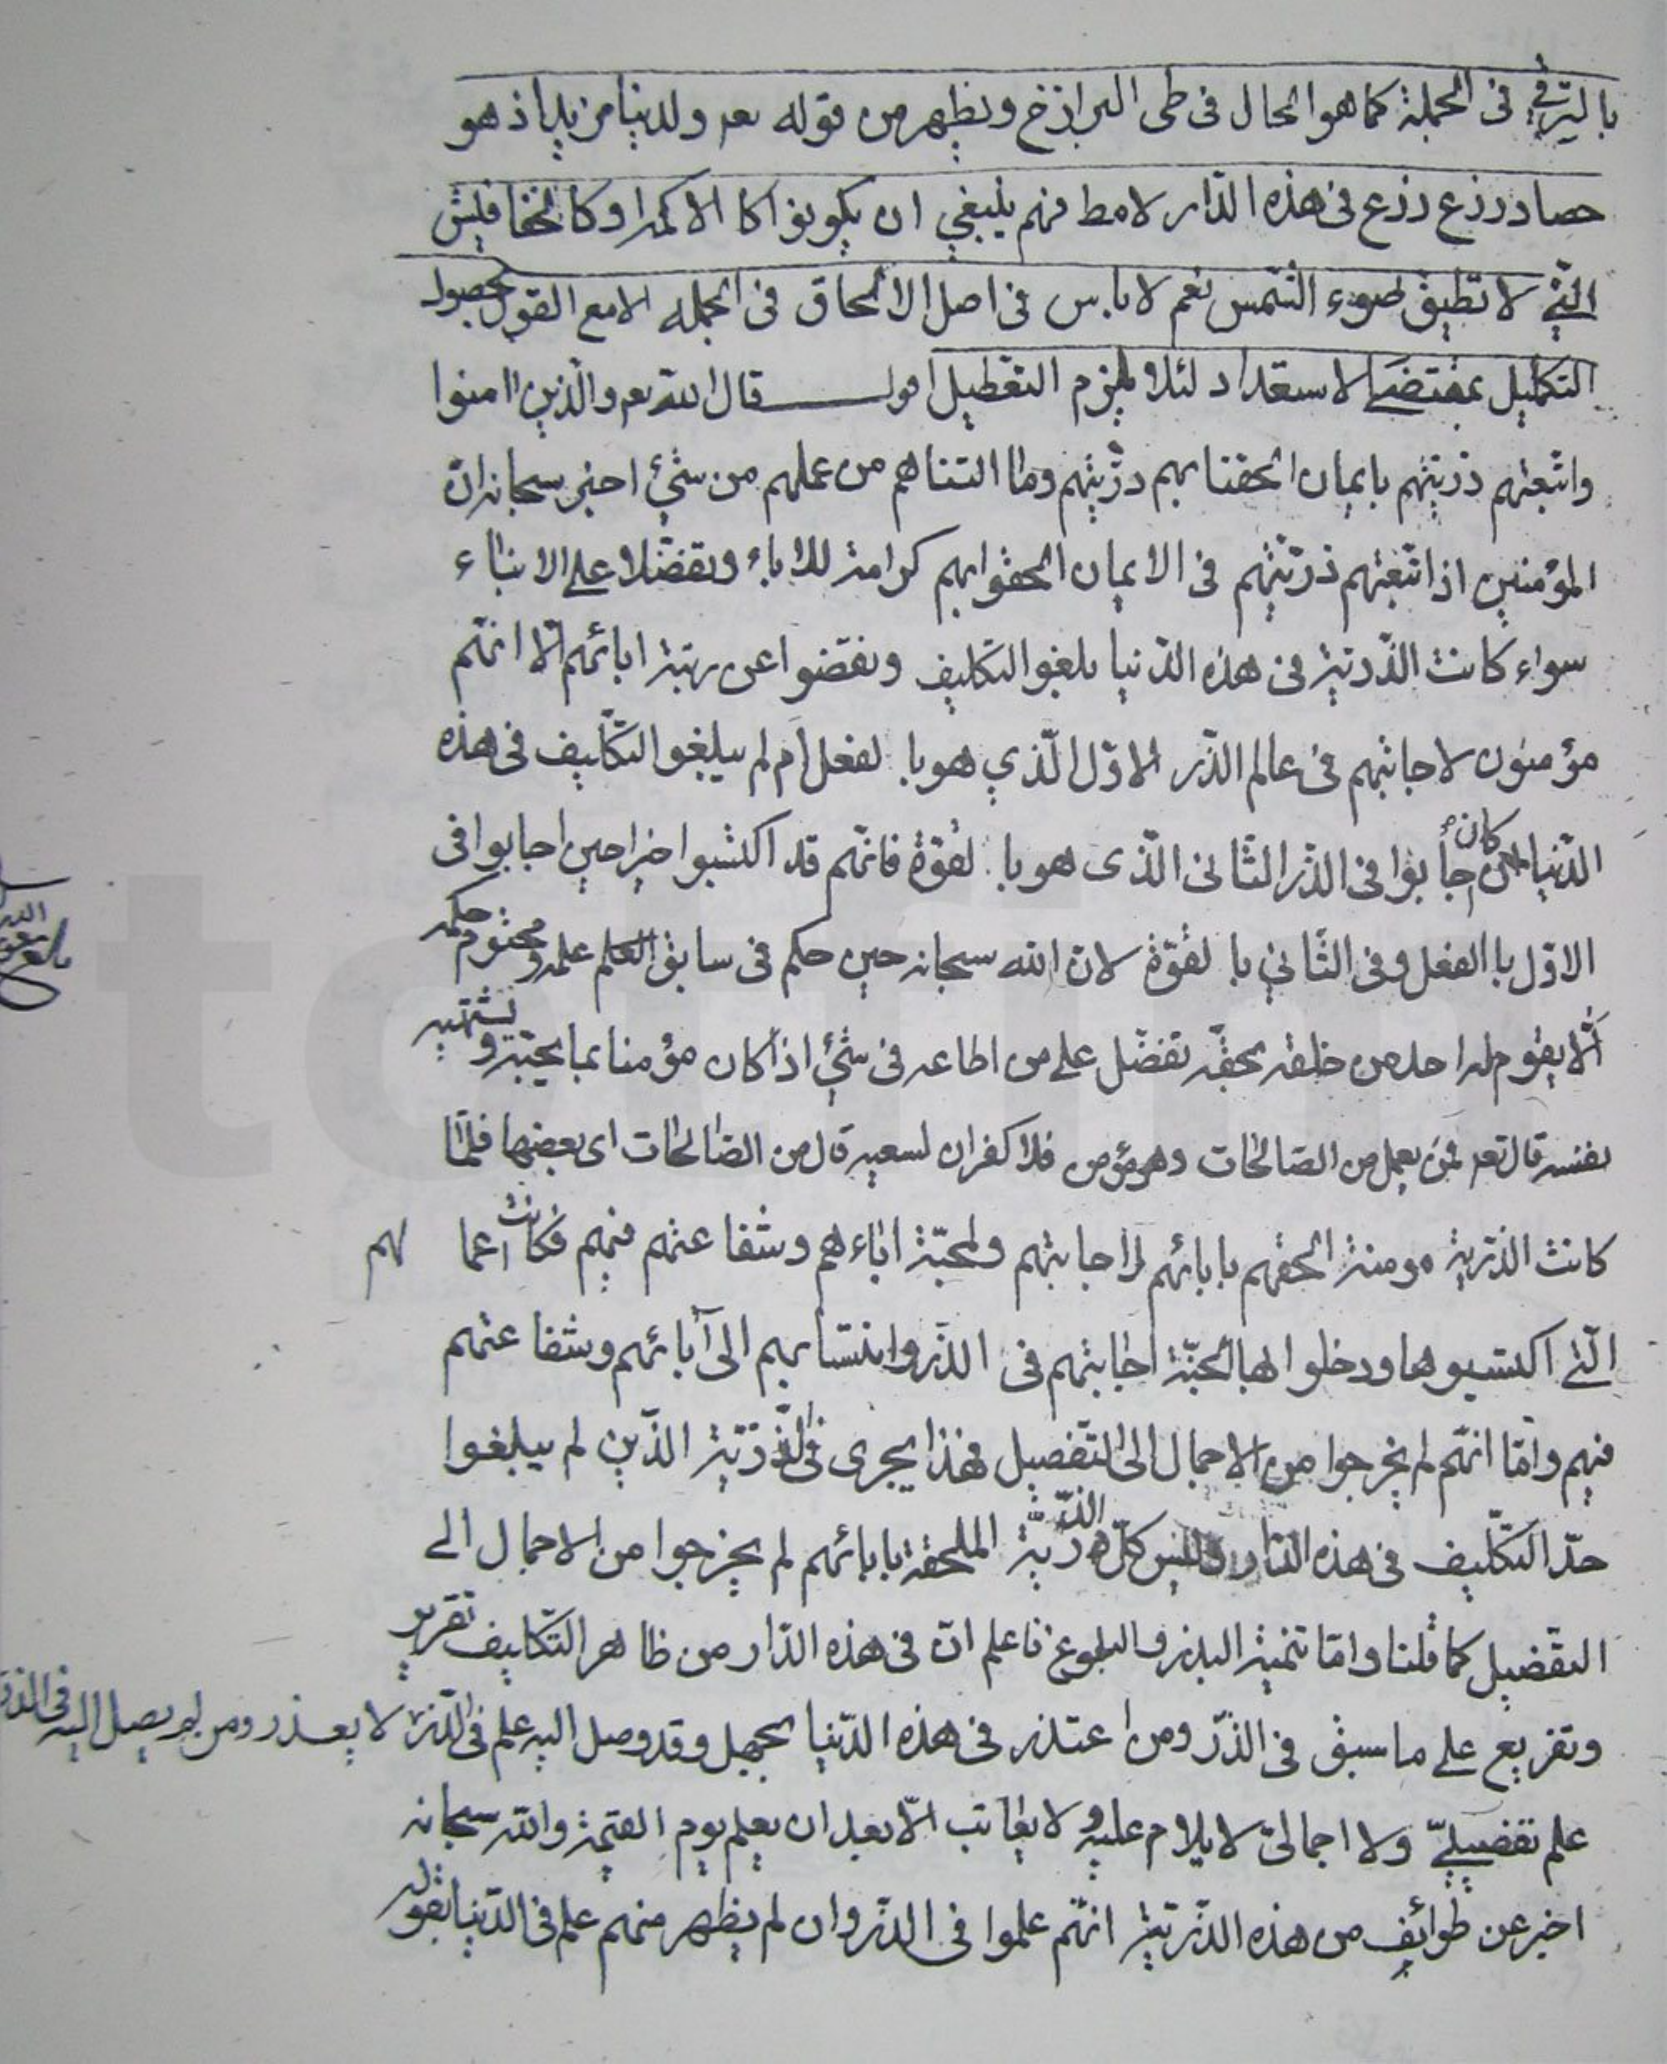 بالترقي في الجملة كما هو الحال في طى البرازخ ويظهر من قوله تعم ولدينا مزيد اذ هو
حصاد زرع زرع في هذه الدّار لا مط فهم ينبغي ان يكونوا كا الاكمه او كالخفافيش
الّتي لا تطيق ضوء الشّمس نعم لا باس في اصل الالحاق في الجمله الا مع القول بحصول
التكميل بمقتضى الاستعداد لئلا يلزم التعطيل اقول قال الله تعم والّذين اامنوا
واتّبعتهم ذريّتهم بايمان الحقنا بهم ذرّيتهم وما التناهم من عملهم من شئ اخبر سبحانه انّ
المؤمنين اذا اتّبعتهم ذرّيّتهم في الايمان الحقوا بهم كرامة للاباء وتفضّلا على الابناء
سواء كانت الذّرّيّة في هذه الدّنيا بلغوا التكليف ونقصوا عن رتبة ابائهم الّا انّهم
مؤمنون لاجابتهم في عالم الذّر الاوّل الّذي هو با لفعل ام لم يبلغوا التكليف في هذه
الدّنيا كان اجابوا في الذّر الثّانى الّذى هو با لقوّة فانّهم قد اكتسبوا خيرا حين اجابوا في
الاوّل باالفعل وفى الثّاني با لقوّة لانّ الله سبحانه حين حكم في سابق العلم علمه ومحتوم حكمه
الّا يقوم له احد من خلقه بحقّه تفضّل على من اطاعه في شئ اذا كان مؤمنا بما يحبّه وتشتهيه
نفسه قال تعم فمن يعمل من الصّالحات وهو مؤمن فلا كفران لسعيه قال من الصّالحات اى بعضها فلمّا
كانت الذّريّة مومنة الحقهم بابائهم لاجابتهم ولمحبّة اباءهم وشفاعتهم فيهم فكانت اعما لهم
الّتي اكتسبوها ودخلوا بها الجنّة اجابتهم في الذّر وانتسابهم الى آبائهم وشفاعتهم
فيهم وامّا انّهم لم يخرجوا من الاجمال الى التّفصيل فهذا يجرى في الذّرّيّة الذّين لم يبلغوا
حدّ التكّليف في هذه الدّار وليس كلّ الذّرّيّة الملحقة بابائهم لم يخرجوا من الاجمال الى
التفّصيل كما قلنا وامّا تنمية البذر والبلوغ فاعلم انّ في هذه الدّار من ظاهر التّكليف تقرير
وتفريع على ما سبق في الذّرّ ومن اعتذر في هذه الدّنيا بجهل وقد وصل اليه علم في الذّر لا يعذر ومن لم يصل اليه في الذّر
علم تفصيليّ ولا اجمالىّ لا يلام عليه ولا يعاتب الّا بعد ان يعلم يوم القيمة والله سبحانه
اخبر عن طوائف من هذه الذّرّيّة انّهم علموا في الذّر وان لم يظهر منهم علم في الدّنيا بقوله